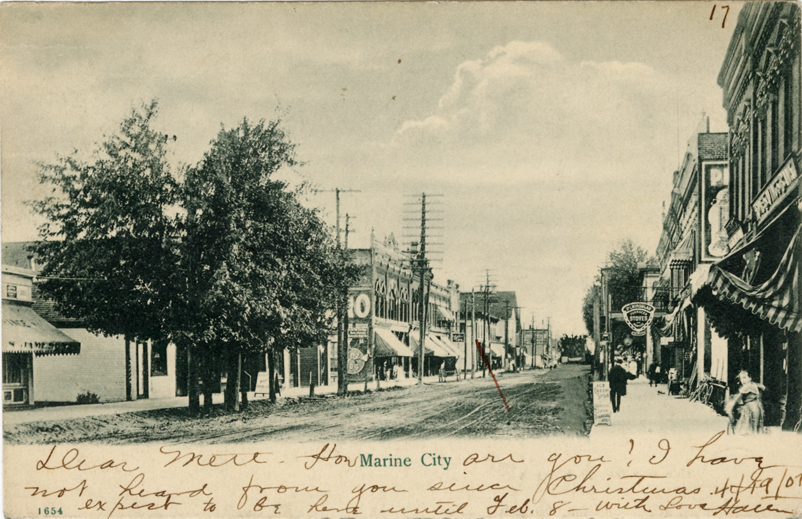 17
STOVES
Marine City
Dear Mett - How are you? I have
not heard from you since Christmas
expect to be here until Feb. 8 - with Love
1654